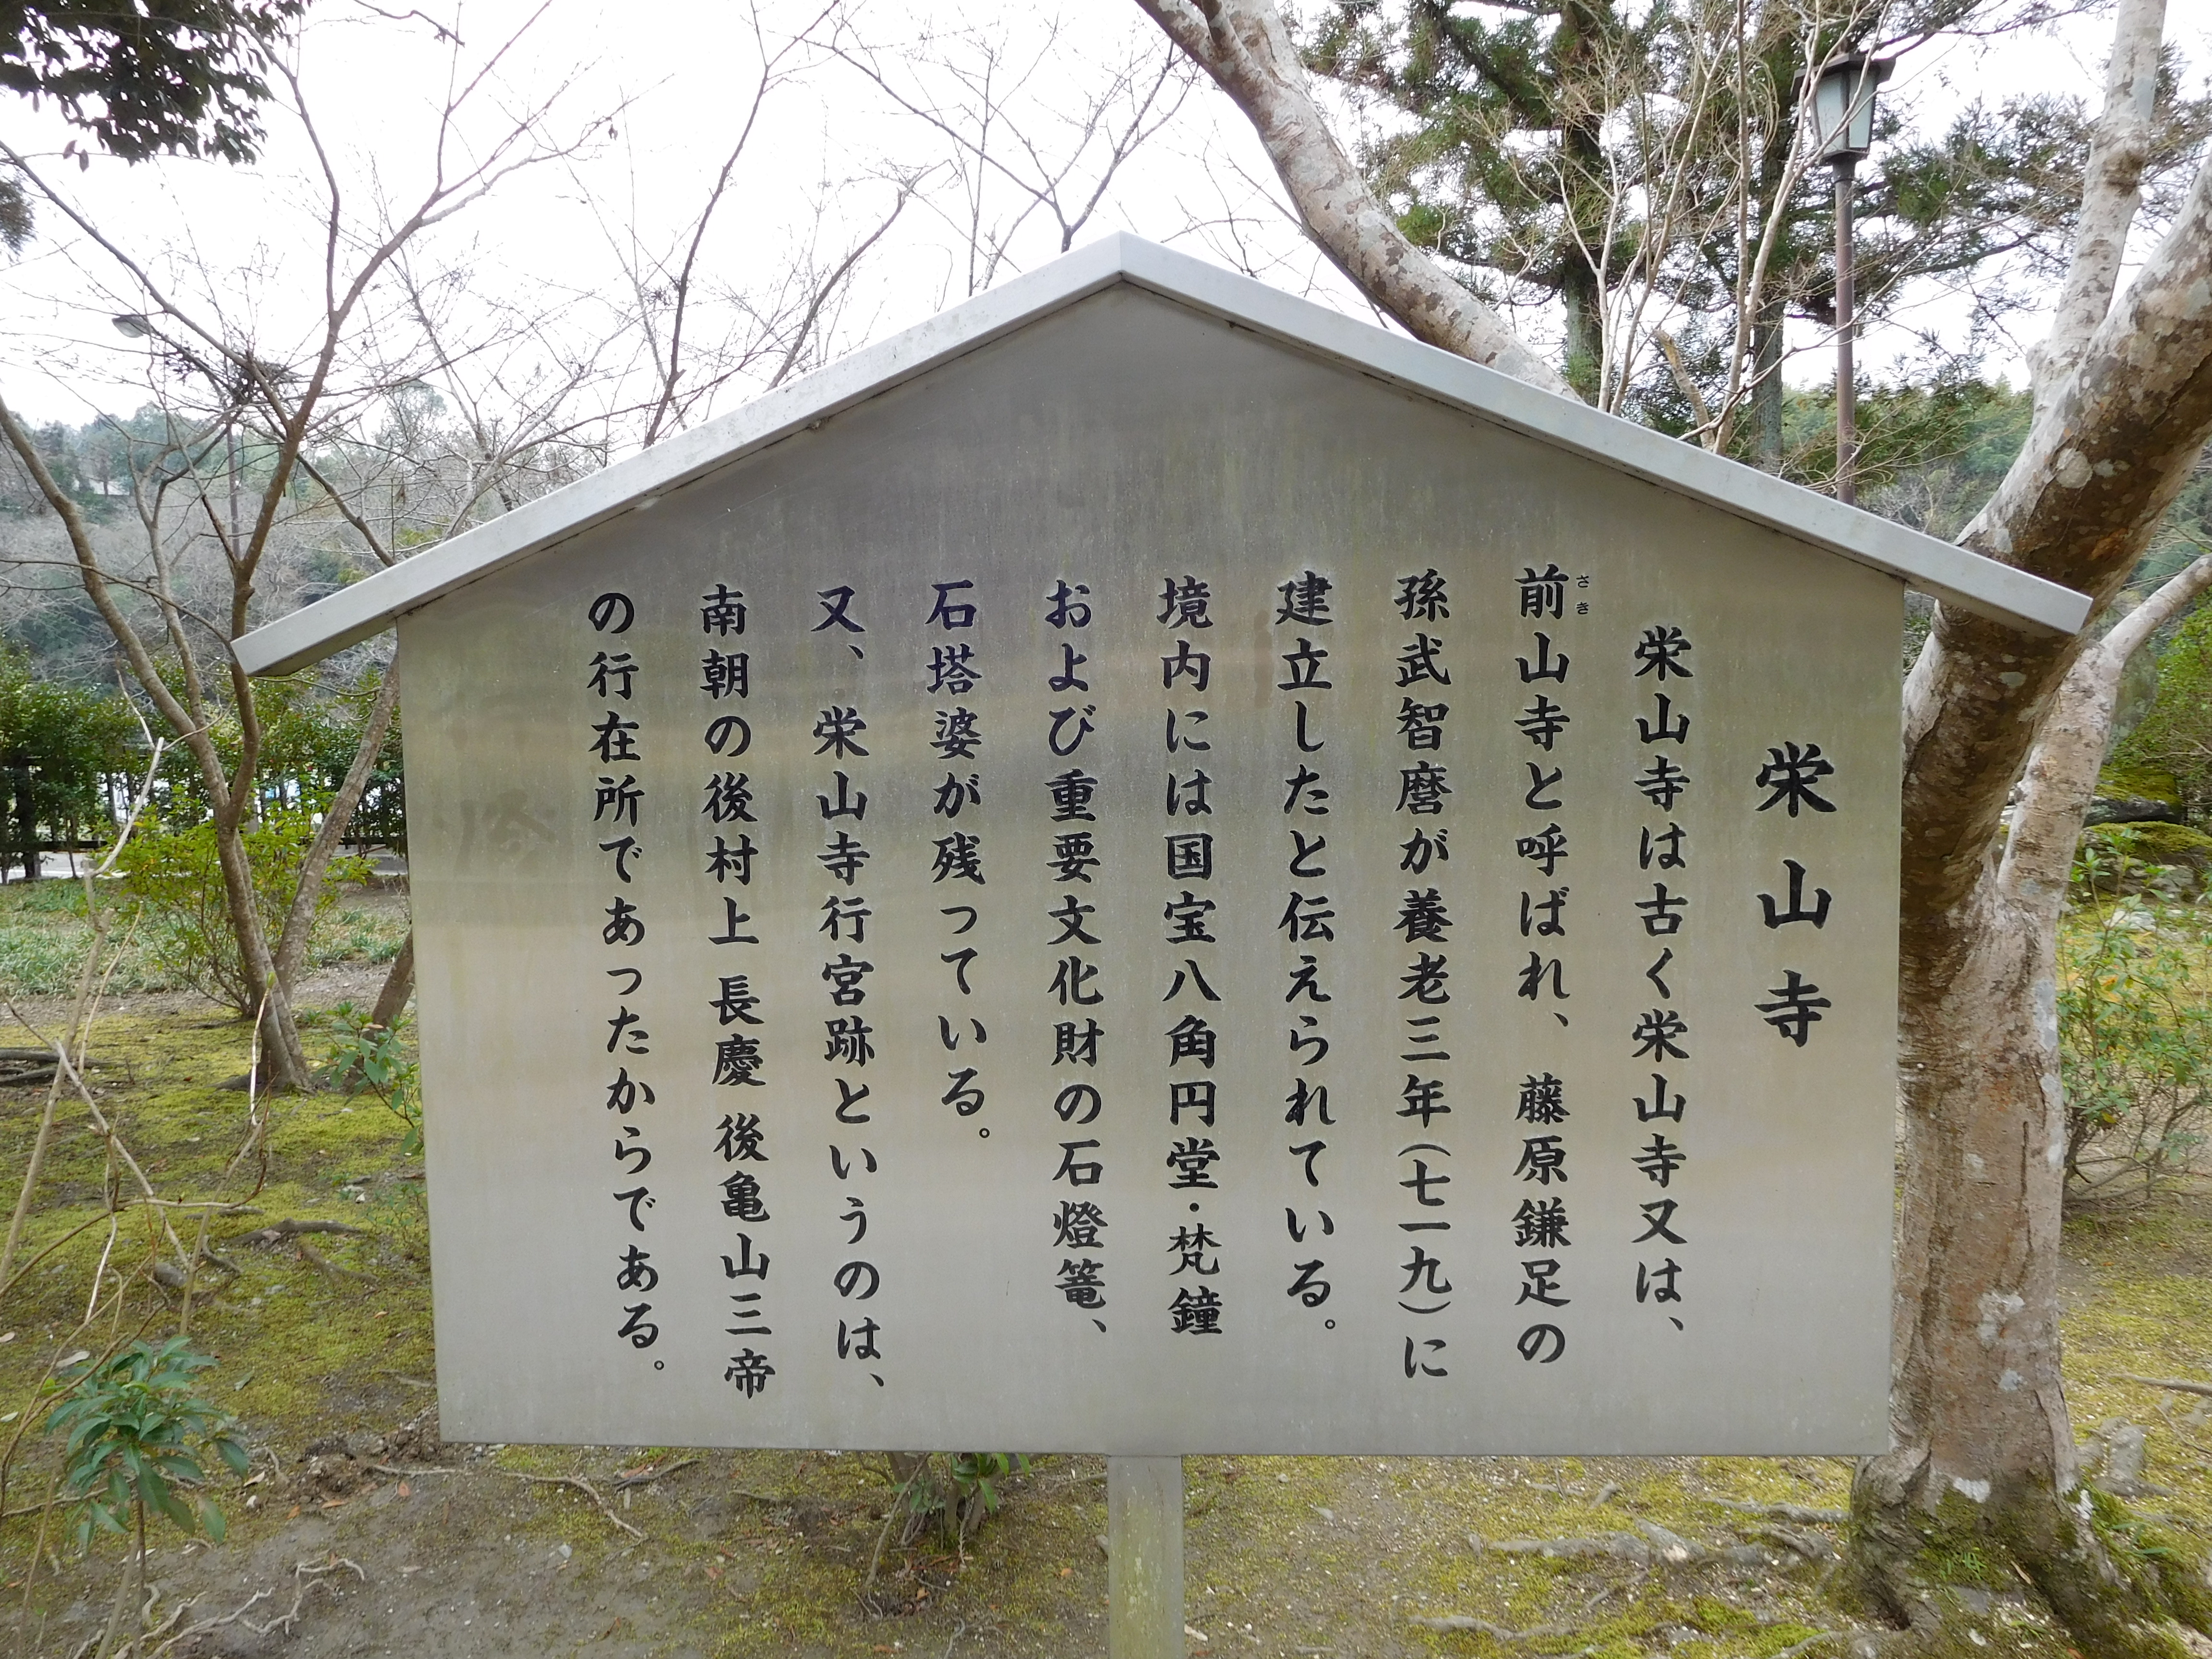 栄山寺
栄山寺は古く栄山寺又は、
前山寺と呼ばれ、藤原鎌足の
さき
孫武智麿が養老三年(七一九)に
建立したと伝えられている。
境内には国宝八角円堂・梵鐘
および重要文化財の石燈篭、
石塔婆が残っている。
又、栄山寺行宮跡というのは、
南朝の後村上 長慶 後亀山三帝
の行在所であったからである。